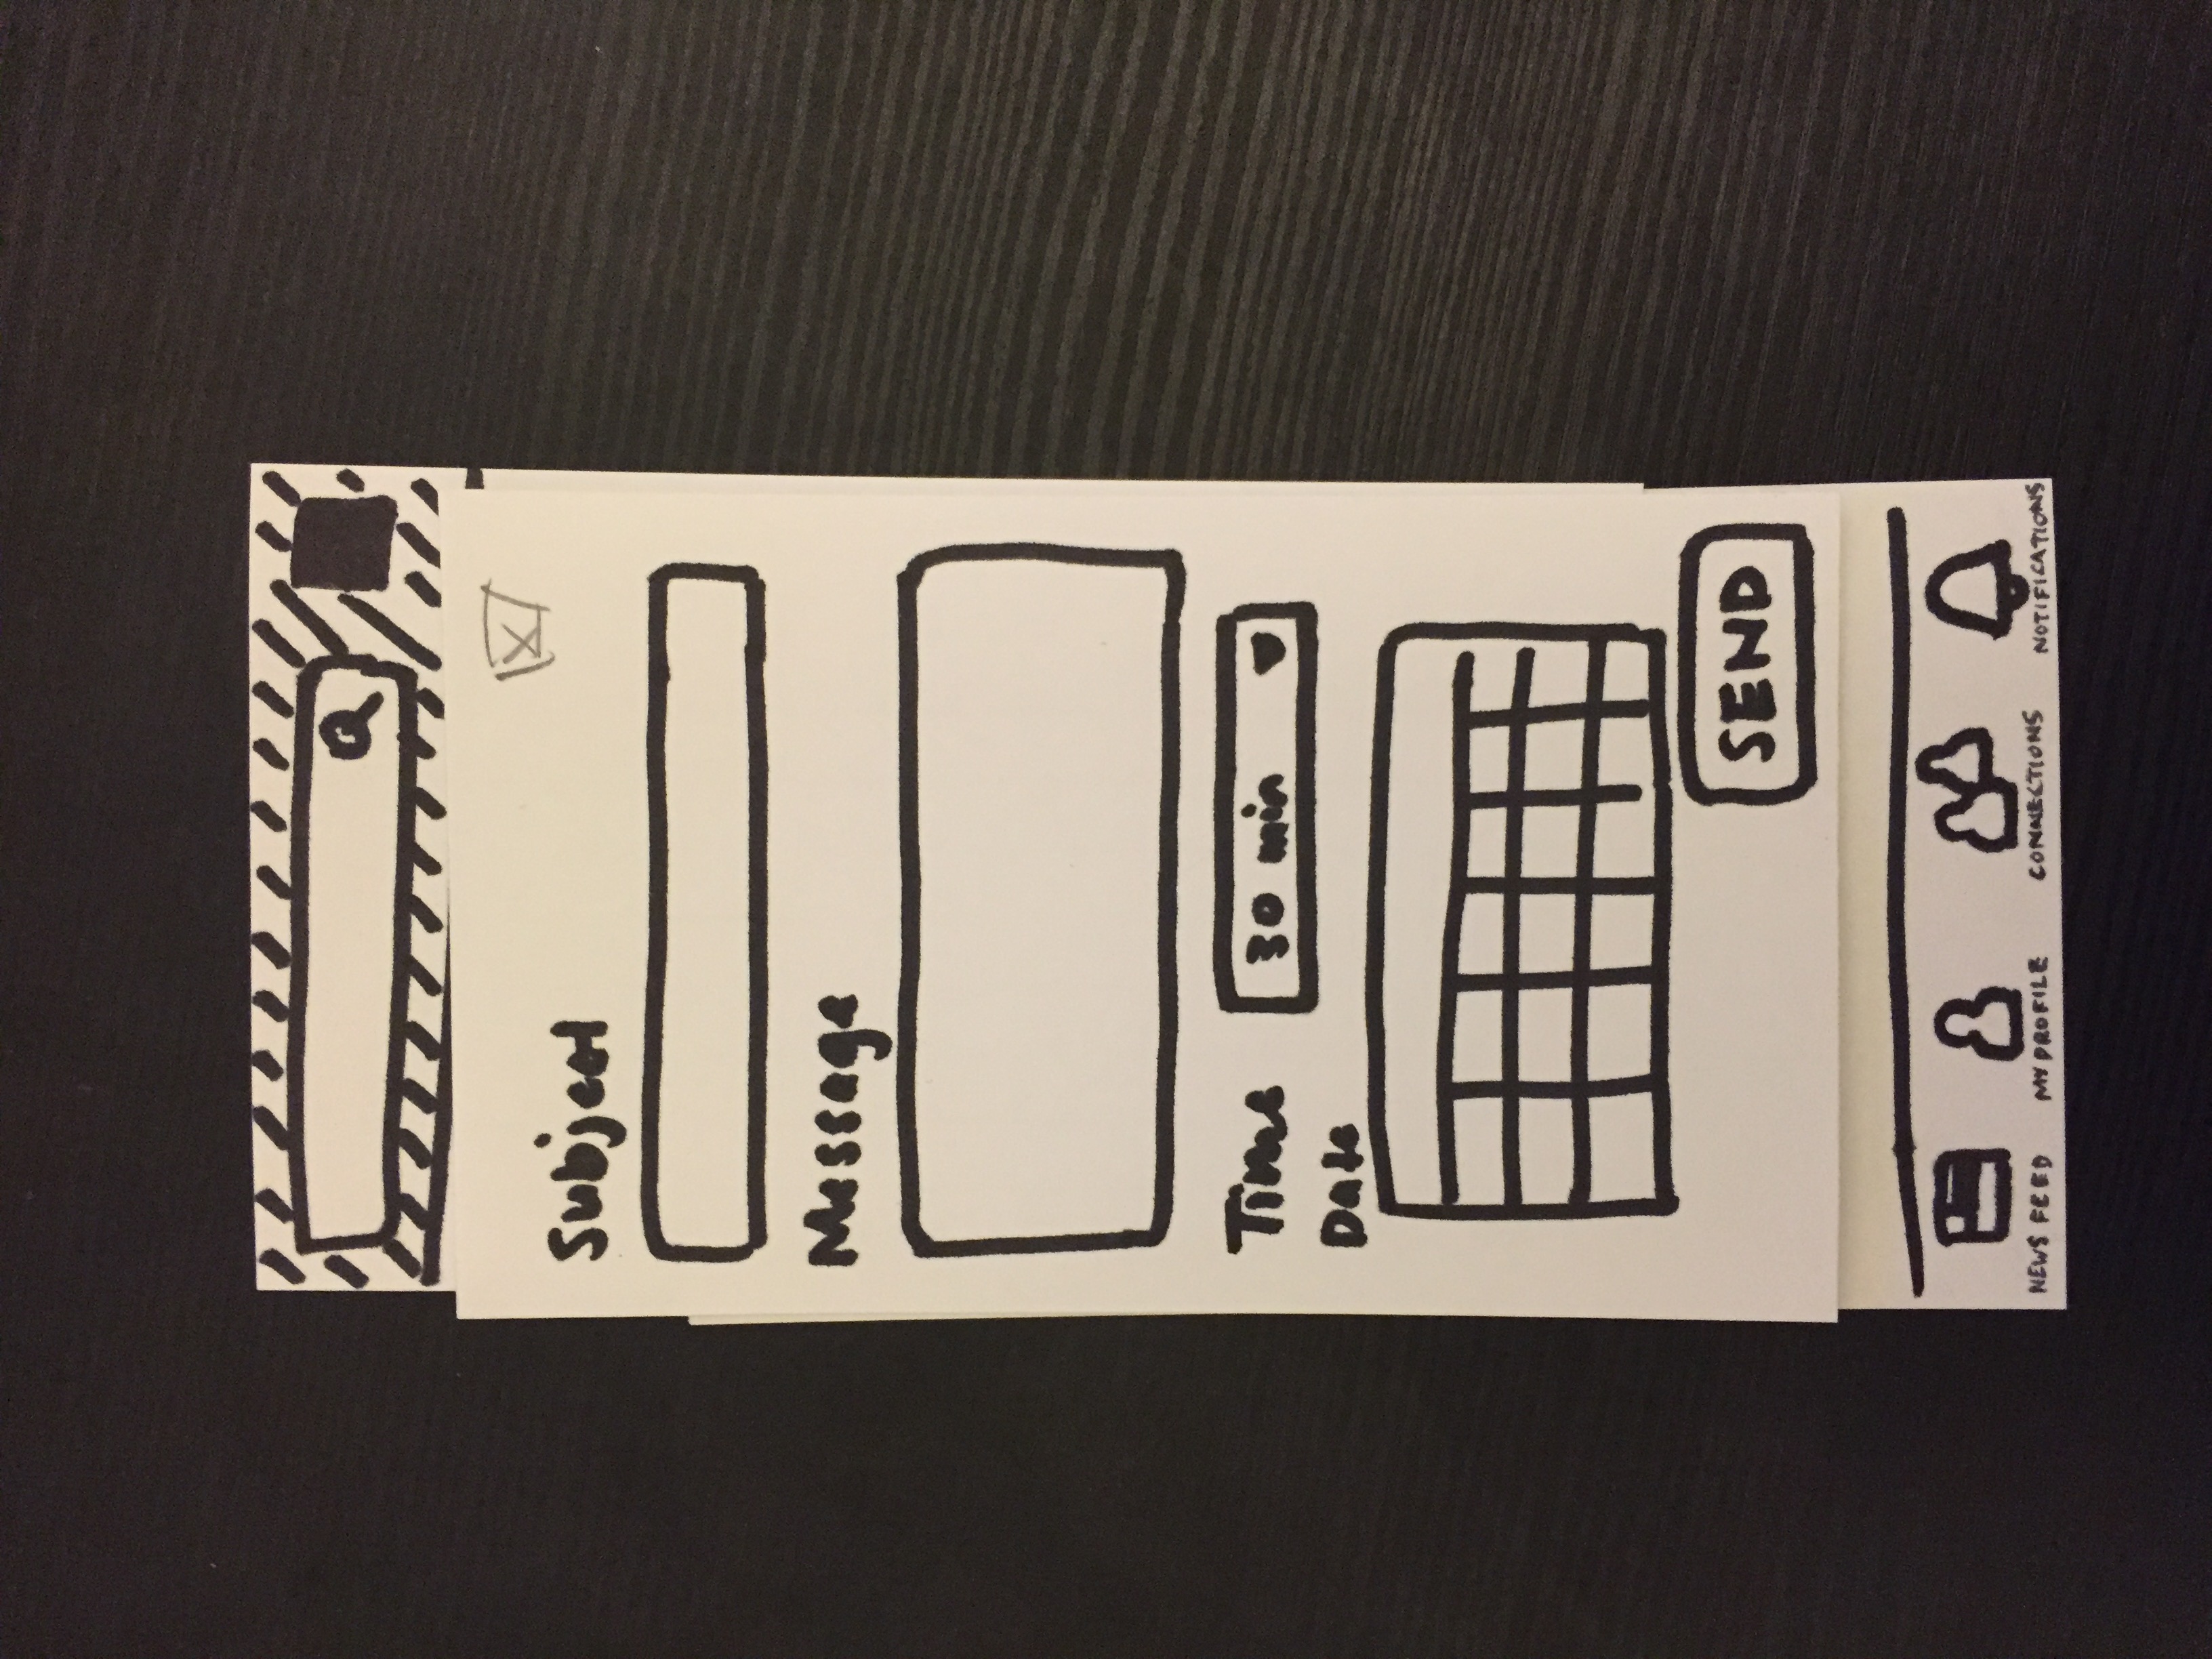 X
Subject
Message
Time 30 min
Date
SEND
NEWS FEED MY PROFILE CONNECTIONS NOTIFICATIONS